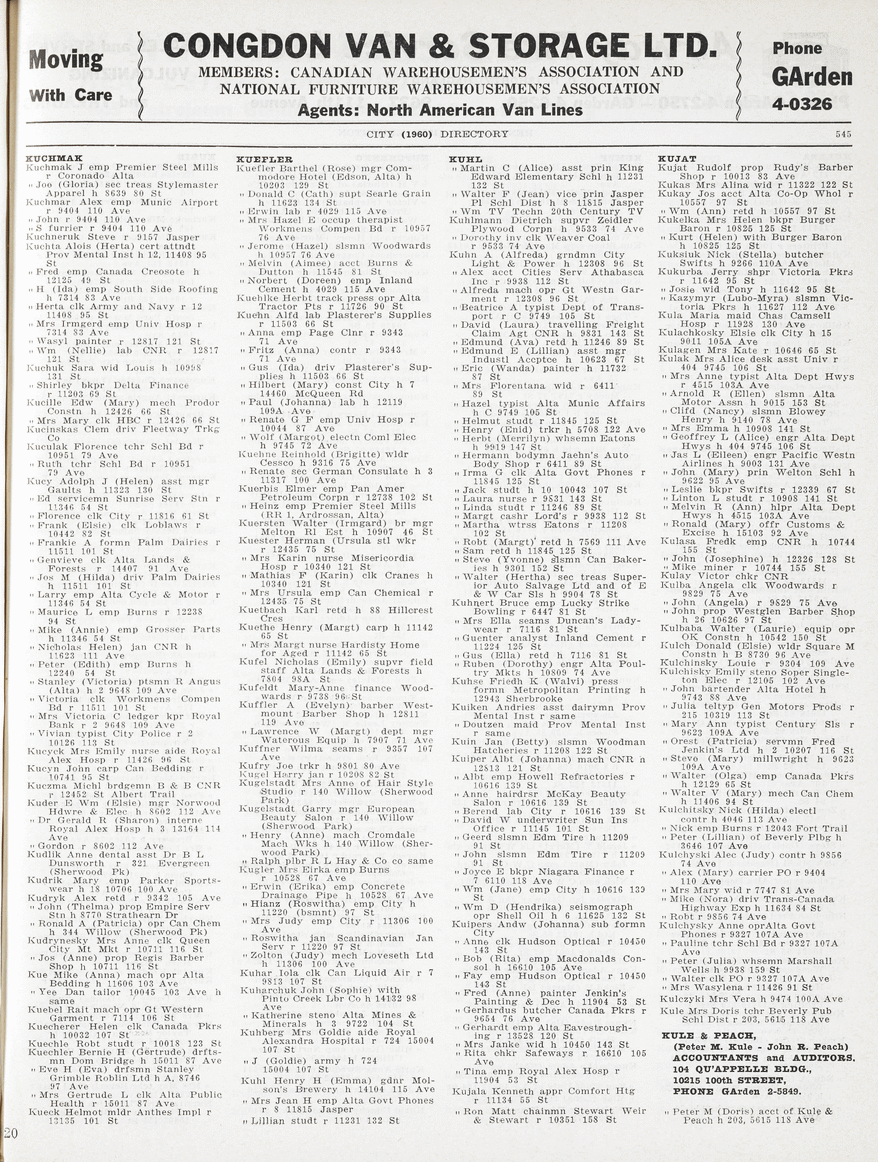 Moving
With Care
CONGDON VAN & STORAGE LTD.
MEMBERS: CANADIAN WAREHOUSEMEN'S ASSOCIATION AND
NATIONAL FURNITURE WAREHOUSEMEN'S ASSOCIATION
Agents: North American Van Lines
Phone
GArden
4-0326
CITY (1960) DIRECTORY 545
KUCHMAK
Kuchmak J emp Premier Steel Mills
r Coronado Alta
" Joe (Gloria) sec treas Stylemaster
Apparel h 8639 80 St
Kuchmar Alex emp Munic Airport
r 9404 110 Ave
" John r 9404 110 Ave
" S furrier r 9404 110 Ave
Kuchneruk Steve r 9157 Jasper
Kuchta Alois (Herta) cert attndt
Prov Mental Inst h 12, 11408 95
St
" Fred emp Canada Creosote h
12125 49 St
" H (Ida) emp South Side Roofing
h 7314 83 Ave
" Herta clk Army and Navy r 12
11408 95 St
" Mrs Irmgerd emp Univ Hosp r
7314 83 Ave
" Wasyl painter r 12817 121 St
" Wm (Nellie) lab CNR r 12817
121 St
Kuchuk Sara wid Louis h 10998
131 St
" Shirley bkpr Delta Finance
r 11203 69 St
Kucille Edw (Mary) mech Prodor
Constn h 12426 66 St
" Mrs Mary clk HBC r 12426 66 St
Kucinskas Clem driv Fleetway Trkg
Co
Kuculak Florence tchr Schl Bd r
10951 79 Ave
" Ruth tchr Schl Bd r 10951
79 Ave
Kucy Adolph J (Helen) asst mgr
Gaults h 11323 130 St
" Ed servicemn Sunrise Serv Stn r
11346 54 St
" Florence clk City r 11816 61 St
" Frank (Elsie) clk Loblaws r
10442 82 St
" Frankie A formn Palm Dairies r
11511 101 St
" Genvieve clk Alta Lands &
Forests r 14407 91 Ave
" Jos M (Hilda) driv Palm Dairies
h 11511 101 St
" Larry emp Alta Cycle & Motor r
11346 54 St
" Maurice L emp Burns r 12238
94 St
" Mike (Annie) emp Grosser Parts
h 11346 54 St
" Nicholas Helen) jan CNR h
11623 111 Ave
" Peter (Edith) emp Burns h
12240 54 St
" Stanley (Victoria) ptsmn R Angus
(Alta) h 2 9648 109 Ave
" Victoria clk Workmens Compen
Bd r 11511 101 St
" Mrs Victoria C ledger kpr Royal
Bank r 2 9648 109 Ave
" Vivian typist City Police r 2
10126 113 St
Kucyck Mrs Emily nurse aide Royal
Alex Hosp r 11426 96 St
Kucyn John carp Can Bedding r
10741 95 St
Kuczma Michl brdgemn B & B CNR
r 12452 St Albert Trail
Kuder E Wm (Elsie) mgr Norwood
Hdwre & Elec h 8602 112 Ave
" Dr Gerald R (Sharon) interne
Royal Alex Hosp h 3 13164 114
Ave
" Gordon r 8602 112 Ave
Kudlik Anne dental asst Dr B L
Dunsworth r 321 Evergreen
(Sherwood Pk)
Kudrik Mary emp Parker Sports-
wear h 18 10706 100 Ave
Kudryk Alex retd r 9342 105 Ave
" John (Thelma) prop Empire Serv
Stn h 8770 Strathearn Dr
" Ronald A (Patricia) opr Can Chem
h 344 Willow (Sherwood Pk)
Kudrynesky Mrs Anne clk Queen
City Mt Mkt r 10711 116 St
" Jos (Anne) prop Regis Barber
Shop h 10711 116 St
Kue Mike (Anna) mach opr Alta
Bedding h 11606 103 Ave
" Yee Dan tailor 10045 103 Ave h
same
Kuebel Rait mach opr Gt Western
Garment r 7114 106 St
Kuecherer Helen clk Canada Pkrs
h 10032 107 St
Kuechle Robt studt r 10018 123 St
Kuechler Bernie H (Gertrude) drfts-
mn Dom Bridge h 15011 87 Ave
" Eve H (Eva) drfsmn Stanley
Grimble Roblin Ltd h A, 8746
97 Ave
" Mrs Gertrude L clk Alta Public
Health r 15011 87 Ave
Kueck Helmot mldr Anthes Impl r
13135 101 St
KUEFLER
Kuefler Barthel (Rose) mgr Com-
modore Hotel (Edson, Alta) h
10203 129 St
" Donald C (Cath) supt Searle Grain
h 11623 134 St
" Erwin lab r 4029 115 Ave
" Mrs Hazel E occup therapist
Workmens Compen Bd r 10957
76 Ave
" Jerome (Hazel) slsmn Woodwards
h 10957 76 Ave
" Melvin (Aimee) acct Burns &
Dutton h 11545 81 St
" Norbert (Doreen) emp Inland
Cement h 4029 115 Ave
Kuehlke Herbt track press opr Alta
Tractor Pts r 11726 90 St
Kuehn Alfd lab Plasterer's Supplies
r 11503 66 St
" Anna emp Page Clnr r 9343
71 Ave
" Fritz (Anna) contr r 9343
71 Ave
" Gus (Ida) driv Plasterer's Sup-
plies h 11503 66 St
" Hilbert (Mary) const City h 7
14460 McQueen Rd
" Paul (Johanna) lab h 12119
109A Ave
" Renate G F emp Univ Hosp r
10044 87 Ave
" Wolf (Margot) electn Coml Elec
h 9745 72 Ave
Kuehne Reinhold (Brigitte) wldr
Cessco h 9316 75 Ave
" Renate sec German Consulate h 3
11317 100 Ave
Kuerbis Elmer emp Pan Amer
Petroleum Corpn r 12738 102 St
" Heinz emp Premier Steel Mills
(RR 1, Ardrossan, Alta)
Kuersten Walter (Irmgard) br mgr
Melton Rl Est h 10907 46 St
Kuester Herman (Ursula stl wkr
r 12435 75 St
" Mrs Karin nurse Misericordia
Hosp r 10340 121 St
" Mathias F (Karin) clk Cranes h
10340 121 St
" Mrs Ursula emp Can Chemical r
12435 75 St
Kuetbach Karl retd h 88 Hillcrest
Cres
Kuethe Henry (Margt) carp h 11142
65 St
" Mrs Margt nurse Hardisty Home
for Aged r 11142 65 St
Kufel Nicholas (Emily) supvr field
staff Alta Lands & Forests h
7804 98A St
Kufeldt Mary-Anne finance Wood-
wards r 9738 96 St
Kuffler A (Evelyn) barber West-
mount Barber Shop h 12811
119 Ave
" Lawrence W (Margt) dept mgr
Waterous Equip h 7907 71 Ave
Kuffner Wilma seams r 9357 107
Ave
Kufry Joe trkr h 9801 80 Ave
Kugel Harry jan r 10208 82 St
Kugelstadt Mrs Anne of Hair Style
Studio r 140 Willow (Sherwood
Park)
Kugelstadt Garry mgr European
Beauty Salon r 140 Willow
(Sherwood Park)
" Henry (Anne) mach Cromdale
Mach Wks h 140 Willow (Sher-
wood Park)
" Ralph plbr R L Hay & Co co same
Kugler Mrs Eirka emp Burns
r 10528 67 Ave
" Erwin (Erika) emp Concrete
Drainage Pipe h 10528 67 Ave
" Hianz (Roswitha) emp City h
11220 (bsmnt) 97 St
" Mrs Judy emp City r 11306 100
Ave
" Roswitha jan Scandinavian Jan
Serv r 11220 97 St
" Zolton (Judy) mech Loveseth Ltd
h 11306 100 Ave
Kuhar Iola clk Can Liquid Air r 7
9813 107 St
Kuharchuk John (Sophie) with
Pinto Creek Lbr Co h 14132 98
Ave
" Katherine steno Alta Mines &
Minerals h 3 9722 104 St
Kuhberg Mrs Goldie aide Royal
Alexandra Hospital r 724 15004
107 St
" J (Goldie) army h 724
15004 107 St
Kuhl Henry H (Emma) gdnr Mol-
son's Brewery h 14104 115 Ave
" Mrs Jean H emp Alta Govt Phones
r 8 11815 Jasper
" Lillian studt r 11231 132 St
KUHL
" Martin C (Alice) asst prin King
Edward Elementary Schl h 11231
132 St
" Walter F (Jean) vice prin Jasper
Pl Schl Dist h 8 11815 Jasper
" Wm TV Techn 20th Century TV
Kuhlmann Dietrich supvr Zeidler
Plywood Corpn h 9533 74 Ave
" Dorothy inv clk Weaver Coal
r 9533 74 Ave
Kuhn A (Alfreda) grndmn City
Light & Power h 12308 96 St
" Alex acct Cities Serv Athabasca
Inc r 9938 112 St
" Alfreda mach opr Gt Westn Gar-
ment r 12308 96 St
" Beatrice A typist Dept of Trans-
port r C 9749 105 St
" David (Laura) travelling Freight
Claim Agt CNR h 9831 143 St
" Edmund (Ava) retd h 11246 89 St
" Edmund E (Lillian) asst mgr
Industl Accptce h 10623 67 St
" Eric (Wanda) painter h 11732
87 St
" Mrs Florentana wid r 6411
89 St
" Hazel typist Alta Munic Affairs
h C 9749 105 St
" Helmut studt r 11845 125 St
" Henry (Enid) trkr h 5708 122 Ave
" Herbt (Merrilyn) whsemn Eatons
h 9919 147 St
" Hermann bodymn Jaehn's Auto
Body Shop r 6411 89 St
" Irma G clk Alta Govt Phones r
11845 125 St
" Jack studt h 10 10043 107 St
" Laura nurse r 9831 143 St
" Linda studt r 11246 89 St
" Margt cashr Lord's r 9938 112 St
" Martha wtrss Eatons r 11208
102 St
" Robt (Margt) retd h 7569 111 Ave
" Sam retd h 11845 125 St
" Steve (Yvonne) slsmn Can Baker-
ies h 9301 152 St
" Walter (Hertha) sec treas Super-
ior Auto Salvage Ltd and of E
& W Car Sls h 9904 78 St
Kuhnert Bruce emp Lucky Strike
Bowling r 6447 81 St
" Mrs Ella seams Duncan's Lady-
wear r 7116 81 St
" Guenter analyst Inland Cement r
11224 125 St
" Gus (Ella) retd h 7116 81 St
" Ruben (Dorothy) engr Alta Poul-
try Mkts h 10809 74 Ave
Kuhse Friedh K (Walvi) press
formn Metropolitan Printing h
12943 Sherbrooke
Kuiken Andries asst dairymn Prov
Mental Inst r same
" Doutzen maid Prov Mental Inst
r same
Kuin Jan (Betty) slsmn Woodman
Hatcheries r 11208 122 St
Kuiper Albt (Johanna) mach CNR n
12813 121 St
" Albt emp Howell Refractories r
10616 139 St
" Anne hairdrsr McKay Beauty
Salon r 10616 139 St
" Berend lab City r 10616 139 St
" David W underwriter Sun Ins
Office r 11145 101 St
" Geerd slsmn Edm Tire h 11209
91 St
" John slsmn Edm Tire r 11209
91 St
" Joyce E bkpr Niagara Finance r
7 6110 118 Ave
" Wm (Jane) emp City h 10616 139
St
" Wm D (Hendrika) seismograph
opr Shell Oil h 6 11625 132 St
Kuipers Andw (Johanna) sub formn
City
" Anne clk Hudson Optical r 10450
143 St
" Bob (Rita) emp Macdonalds Con-
sol h 16610 105 Ave
" Fay emp Hudson Optical r 10450
143 St
" Fred (Anne) painter Jenkin's
Painting & Dec h 11904 53 St
" Gerhardus butcher Canada Pkrs r
9654 76 Ave
" Gerhardt emp Alta Eavestrough-
ing r 13528 120 St
" Mrs Janke wid h 10450 143 St
" Rita chkr Safeways r 16610 105
Ave
" Tina emp Royal Alex Hosp r
11904 53 St
Kujala Kenneth appr Comfort Htg
r 11134 55 St
" Ron Matt chainmn Stewart Weir
& Stewart r 10351 158 St
KUJAT
Kujat Rudolf prop Rudy's Barber
Shop r 10013 83 Ave
Kukas Mrs Alina wid r 11322 122 St
Kukay Jos acct Alta Co-Op Whol r
10557 97 St
" Wm (Ann) retd h 10557 97 St
Kukelka Mrs Helen bkpr Burger
Baron r 10825 125 St
" Kurt (Helen) with Burger Baron
h 10825 125 St
Kuksiuk Nick (Stella) butcher
Swifts h 9266 110A Ave
Kukurba Jerry shpr Victoria Pkrs
r 11642 95 St
" Josie wid Tony h 11642 95 St
" Kazymyr (Lubo-Myra) slsmn Vic-
toria Pkrs h 11627 112 Ave
Kula Maria maid Chas Camsell
Hosp r 11928 130 Ave
Kulachosky Elsie clk City h 15
9011 105A Ave
Kulagen Mrs Kate r 10646 65 St
Kulak Mrs Alice desk asst Univ r
404 9745 106 St
" Mrs Anne typist Alta Dept Hwys
r 4515 103A Ave
" Arnold R (Ellen) slsmn Alta
Motor Assn h 9015 153 St
" Clifd (Nancy) slsmn Blowey
Henry h 9140 78 Ave
" Mrs Emma h 10908 141 St
" Geoffrey L (Alice) engr Alta Dept
Hwys h 404 9745 106 St
" Jas L (Eileen) engr Pacific Westn
Airlines h 9003 131 Ave
" John (Mary) prin Welton Schl h
9622 95 Ave
" Leslie bkpr Swifts r 12339 67 St
" Linton L studt r 10908 141 St
" Melvin R (Ann) hlpr Alta Dept
Hwys h 4515 103A Ave
" Ronald (Mary) offr Customs &
Excise h 15103 92 Ave
Kulasa Fredk emp CNR h 10744
155 St
" John (Josephine) h 12326 128 St
" Mike miner r 10744 155 St
Kulay Victor chkr CNR
Kulba Angela clk Woodwards r
9829 75 Ave
" John (Angela) r 9829 75 Ave
" John prop Westglen Barber Shop
h 26 10626 97 St
Kulbaba Walter (Laurie) equip opr
OK Constn h 10542 150 St
Kulch Donald (Elsie) wldr Square M
Constn h B 8730 96 Ave
Kulchinsky Louie r 9304 109 Ave
Kulchisky Emily steno Soper Single-
ton Elec r 12105 102 Ave
" John bartender Alta Hotel h
9743 88 Ave
" Julia teltyp Gen Motors Prods r
215 10319 113 St
" Mary Ann typist Century Sls r
9623 109A Ave
" Orest (Patricia) servmn Fred
Jenkin's Ltd h 2 10207 116 St
" Steve (Mary) millwright h 9623
109A Ave
" Walter (Olga) emp Canada Pkrs
h 12129 65 St
" Walter V (Mary) mech Can Chem
h 11406 94 St
Kulchitsky Nick (Hilda) electl
contr h 4046 113 Ave
" Nick emp Burns r 12043 Fort Trail
" Peter (Lillian) of Beverly Plbg h
3646 107 Ave
Kulchyski Alec (Judy) contr h 9856
74 Ave
" Alex (Mary) carrier PO r 9404
110 Ave
" Mrs Mary wid r 7747 81 Ave
" Mike (Nora) driv Trans-Canada
Highway Exp h 11634 84 St
" Robt r 9856 74 Ave
Kulchysky Anne opr Alta Govt
Phones r 9327 107A Ave
" Pauline tchr Schl Bd r 9327 107A
Ave
" Peter (Julia) whsemn Marshall
Wells h 9938 159 St
" Walter clk PO r 9327 107A Ave
" Mrs Wasylena r 11426 91 St
Kulczyki Mrs Vera h 9474 100A Ave
Kule Mrs Doris tchr Beverly Pub
Schl Dist r 203, 5615 118 Ave
KULE & PEACH,
(Peter M. Kule - John R. Peach)
ACCOUNTANTS and AUDITORS,
104 QU'APPELLE BLDG.,
10215 100th STREET,
PHONE GArden 2-5849.
" Peter M (Doris) acct of Kule &
Peach h 203, 5615 118 Ave
20